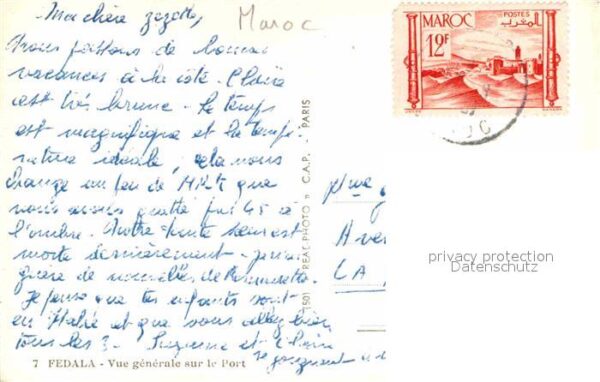 Ma chère zezette,
Maroc
Nous passons de bonnes
vacances à la côté. Claire
est très brune. Le temps
est magnifique et la tempé-
rature idéale, cela nous
change un peu de que
nous avons quitté par 45 à
l'ombre. Notre tante
morte dernièrement -
de nouvelles de
Je pense que tes enfants sont
en Italie et que vous allez bien
tous les 3. Suzanne et Claire
se joignent à
7 FEDALA - Vue générale sur le Port
REAL PHOTO C.A.P. - PARIS
MAROC
POSTES
المغرب
12F
OC
Ave
LA
privacy protection
Datenschutz